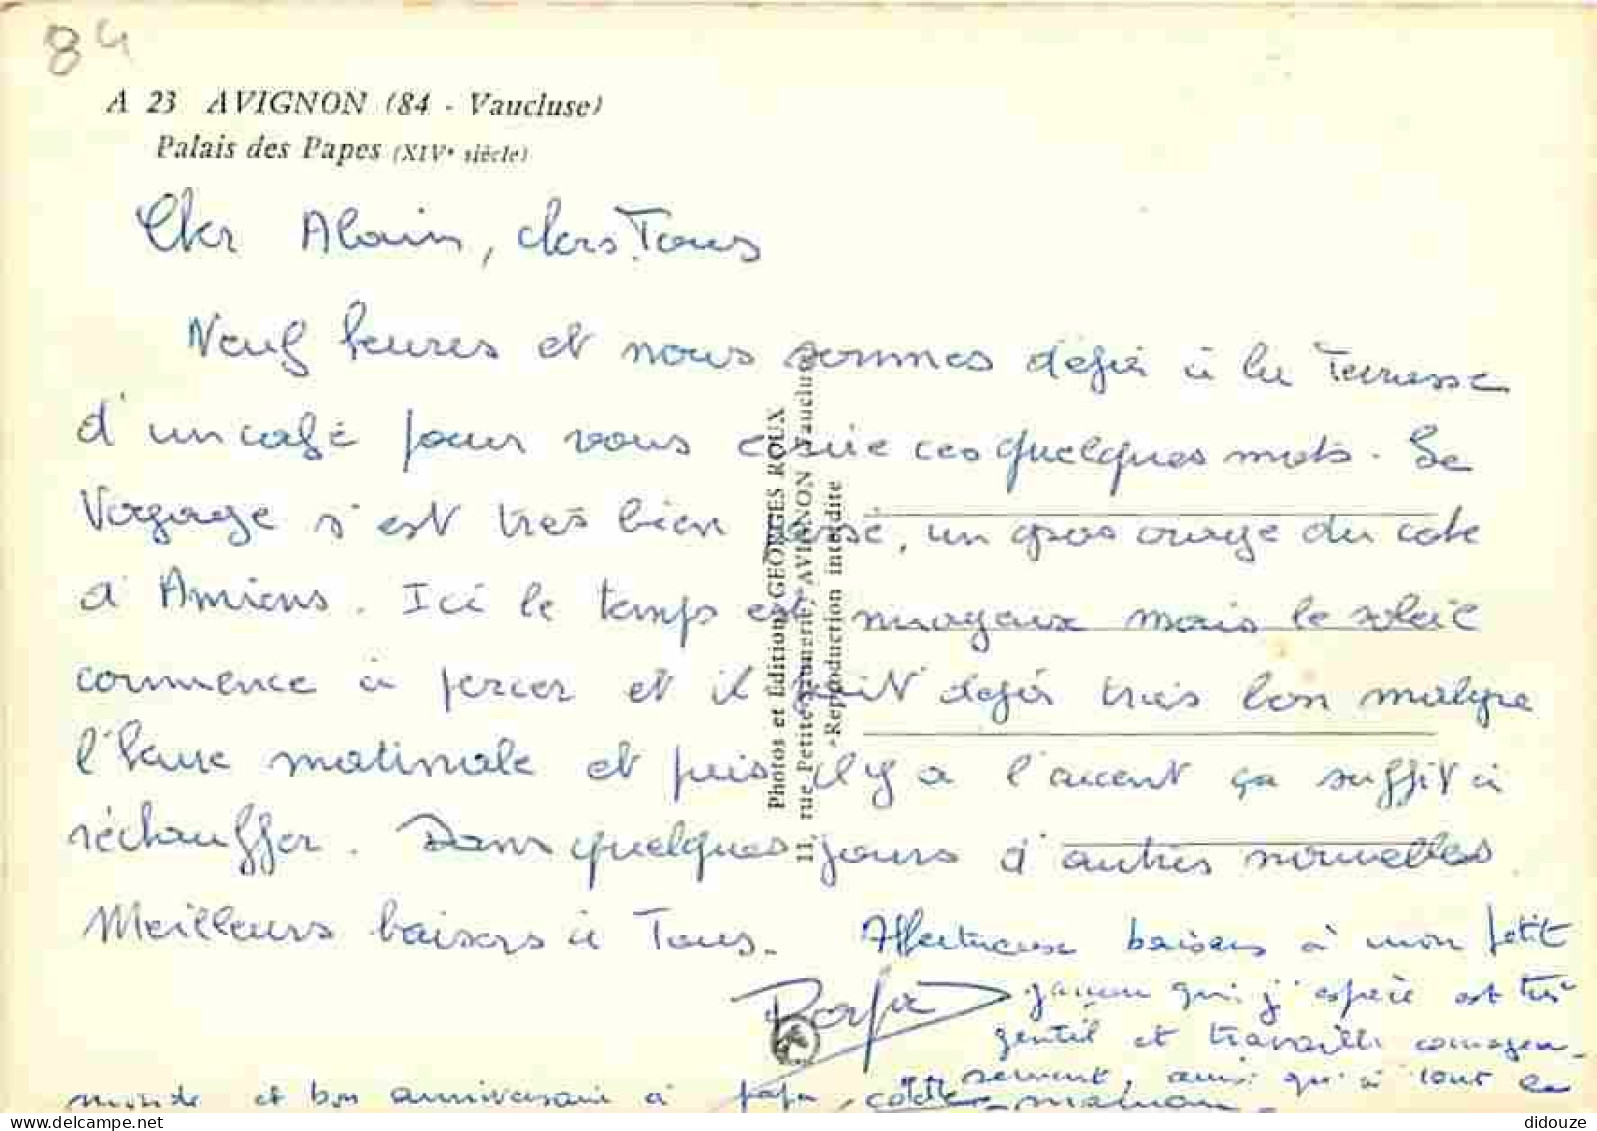 84
A 23 AVIGNON (84 - Vaucluse)
Palais des Papes (XIVe siècle)
Cher Alain, chers Tous
Neuf heures et nous sommes déjà à la Terrasse
d'un café pour vous écrire ces quelques mots. Le
Voyage s'est très bien passé, un gros orage du coté
d'Amiens. Ici le temps est nuageux mais le soleil
commence à percer et il fait déjà très bon malgré
l'heure matinale et puis il y a l'accent ça suffit à
réchauffer. Dans quelques jours d'autres nouvelles
Meilleurs baisers à Tous.
Affectueux baisers à mon petit
garçon qui j'espère est très
gentil et travaille courageu-
sement, ainsi qu'à tout le
monde et bon anniversaire à papa
maman
Photos et Editions GEORGES ROUX
11, rue Petite AVIGNON Vaucluse
Reproduction interdite
delcampe.net
didouze